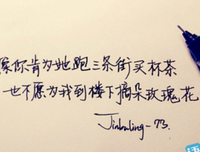 你肯为她跑三条街买杯茶
也不愿为我到楼下摘朵玫瑰花